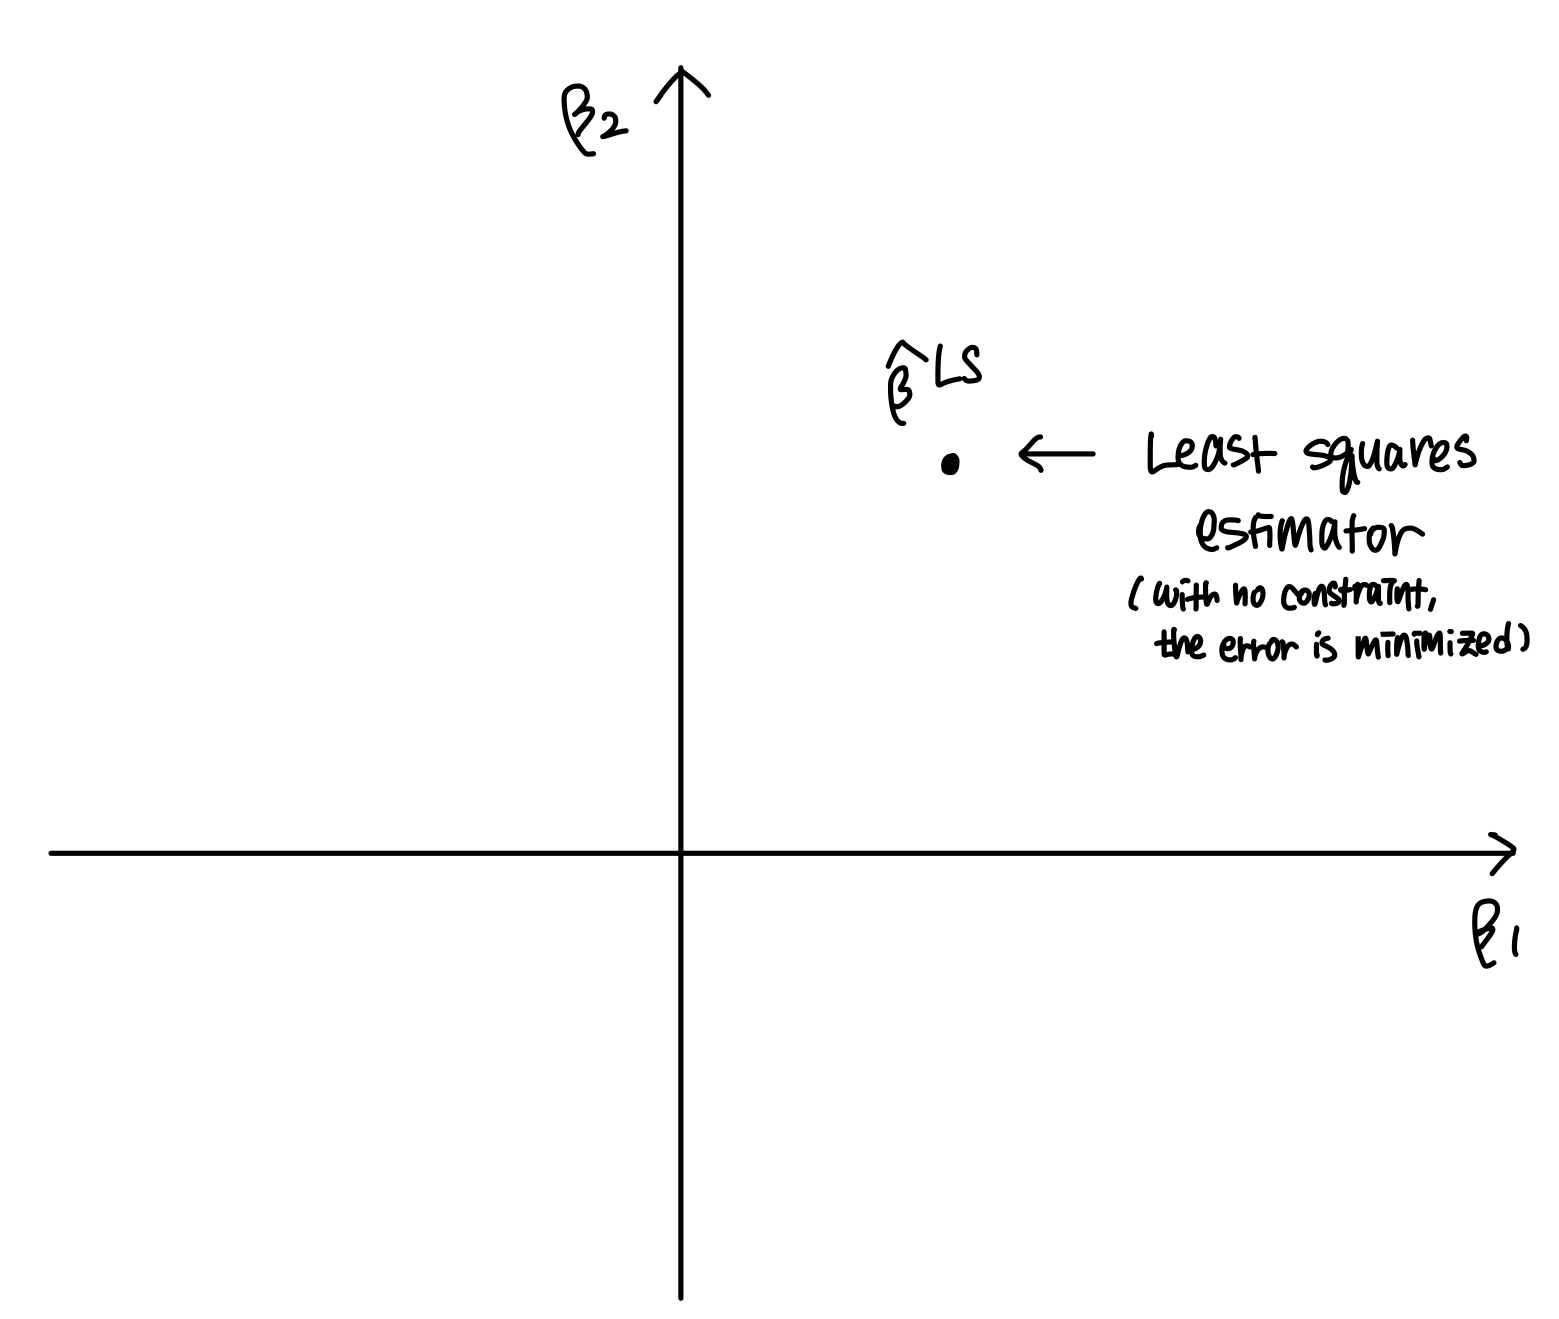 β₂
β̂ ᴸˢ
Least squares
estimator
(with no constraint,
the error is minimized)
β₁